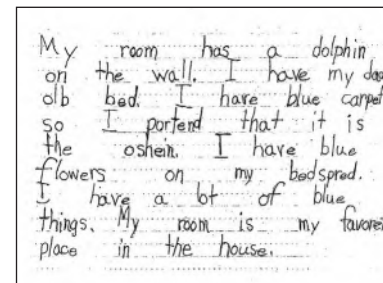 My room has a dolphin
on the wall. I have my dad
olb bed. I have blue carpet
so I portend that it is
the oshein. I have blue
flowers on my bedspred.
I have a lot of blue
things. My room is my favoret
place in the house.